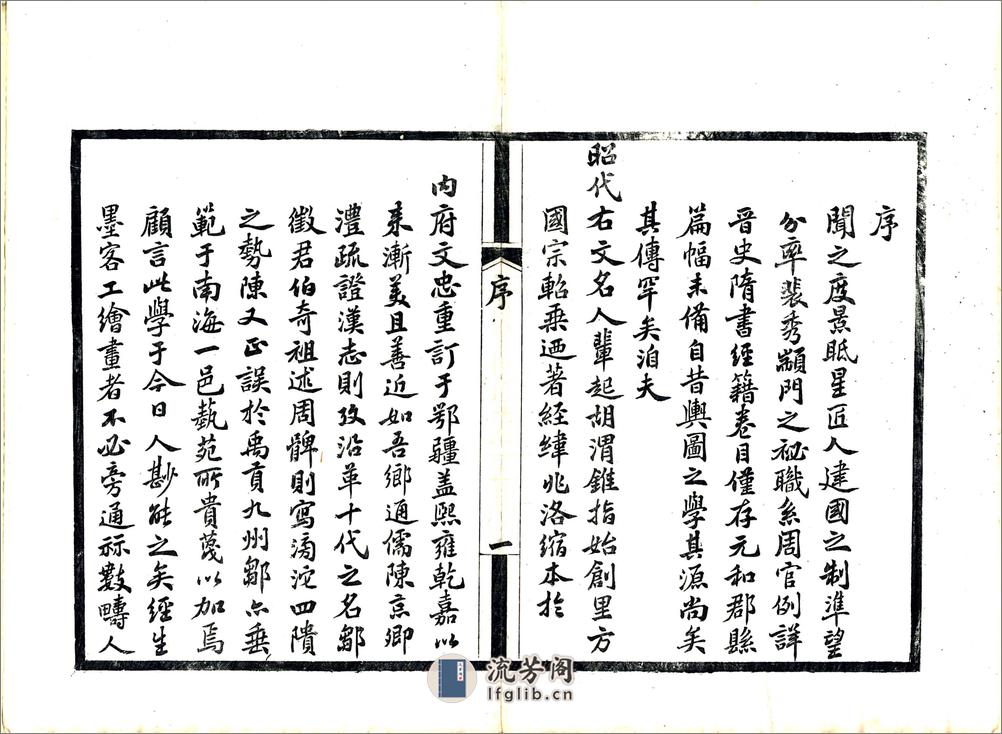 序
聞之度景眡星匠人建國之制準望
分率裴秀顓門之祕職系周官例詳
晉史隋書經籍卷目僅存元和郡縣
篇幅未備自昔輿圖之學其源尚矣
其傳罕矣洎夫
昭代右文名人輩起胡渭錐指始創里方
國宗軺乘迺著經緯兆洛縮本於
序
一
內府文忠重訂于鄂疆盖熙雍乾嘉以
來漸美且善近如吾鄉通儒陳京卿
澧疏證漢志則攷沿革十代之名鄒
徵君伯奇祖述周髀則寫漪沱四隤
之勢陳又正誤於禹貢九州鄒亦垂
範于南海一邑藝苑所貴蔑以加焉
顧言此學于今日人尠能之矣經生
墨客工繪畫者不必旁通祘數疇人
流芳阁
lfglib.cn